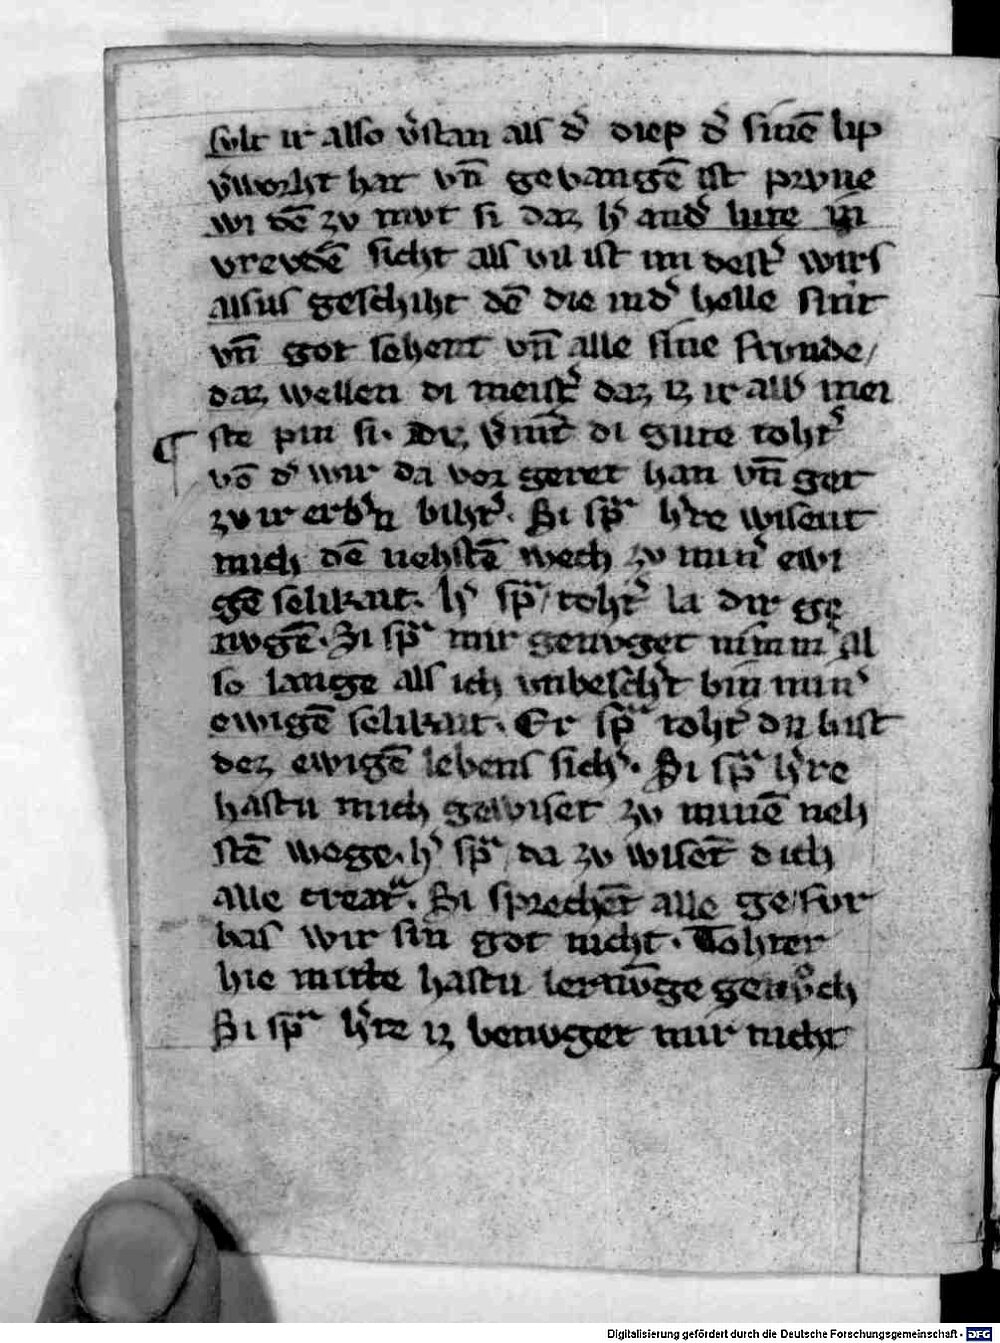 sult ir also v̕stan als d̕ diep d̕ sinē lip
v̕worht hat vn̄ gevangē ist prvne
wi dē zv mvt si daz h̕ and̕ lute in
vrevdē sicht als vil ist im dest̕ wirs
alsus geschiht dē die in d̕ helle sint
vn̄ got sehent vn̄ alle sine frvnde/
daz wellen di meist̕ daz iz ir alb̕ mei
¶ ste pin si. Nv v̕nīt di gute toht̕
vō d̕ wir da vor geret han vn̄ get
zv ir erb̕n biht̕. Si spᵃ h̕re wisent
mich dē nehstē wech zv min̕ ewi
gē selikait. h̕ spᵃ/ toht̕ la dir ge
nvgē. Si spᵃ mir genvget nimm̕ Al
so lange als ich unbesch̕t bin min̕
ewigē selikait. Er spᵃ toht̕ du bist
dez ewigē lebens sich̕. Si spᵃ h̕re
hastu mich gewiset zv minē neh
stē wege. h̕ spᵃ/ da zv wiset̄ dich
alle creatᵃ. Si sprechēt alle ge/fvr
bas wir sin got nicht. Tohter
hie mitte hastu lernv̄ge genvͦch
Si spᵃ h̕re iz benvget mir nicht
Digitalisierung gefördert durch die Deutsche Forschungsgemeinschaft - DFG